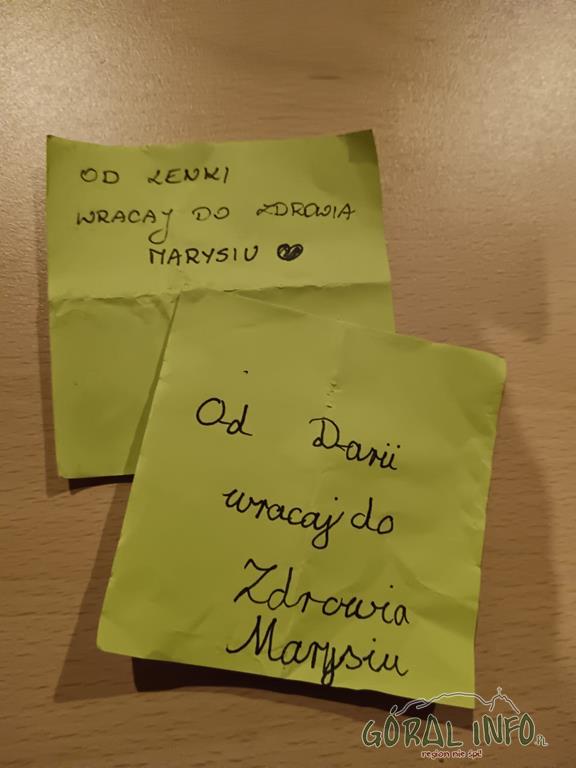 OD LENKI
WRACAJ DO ZDROWIA
MARYSIU ♥
Od Darii
wracaj do
Zdrowia
Marysiu
GÓRAL INFO.PL
region nie śpi!